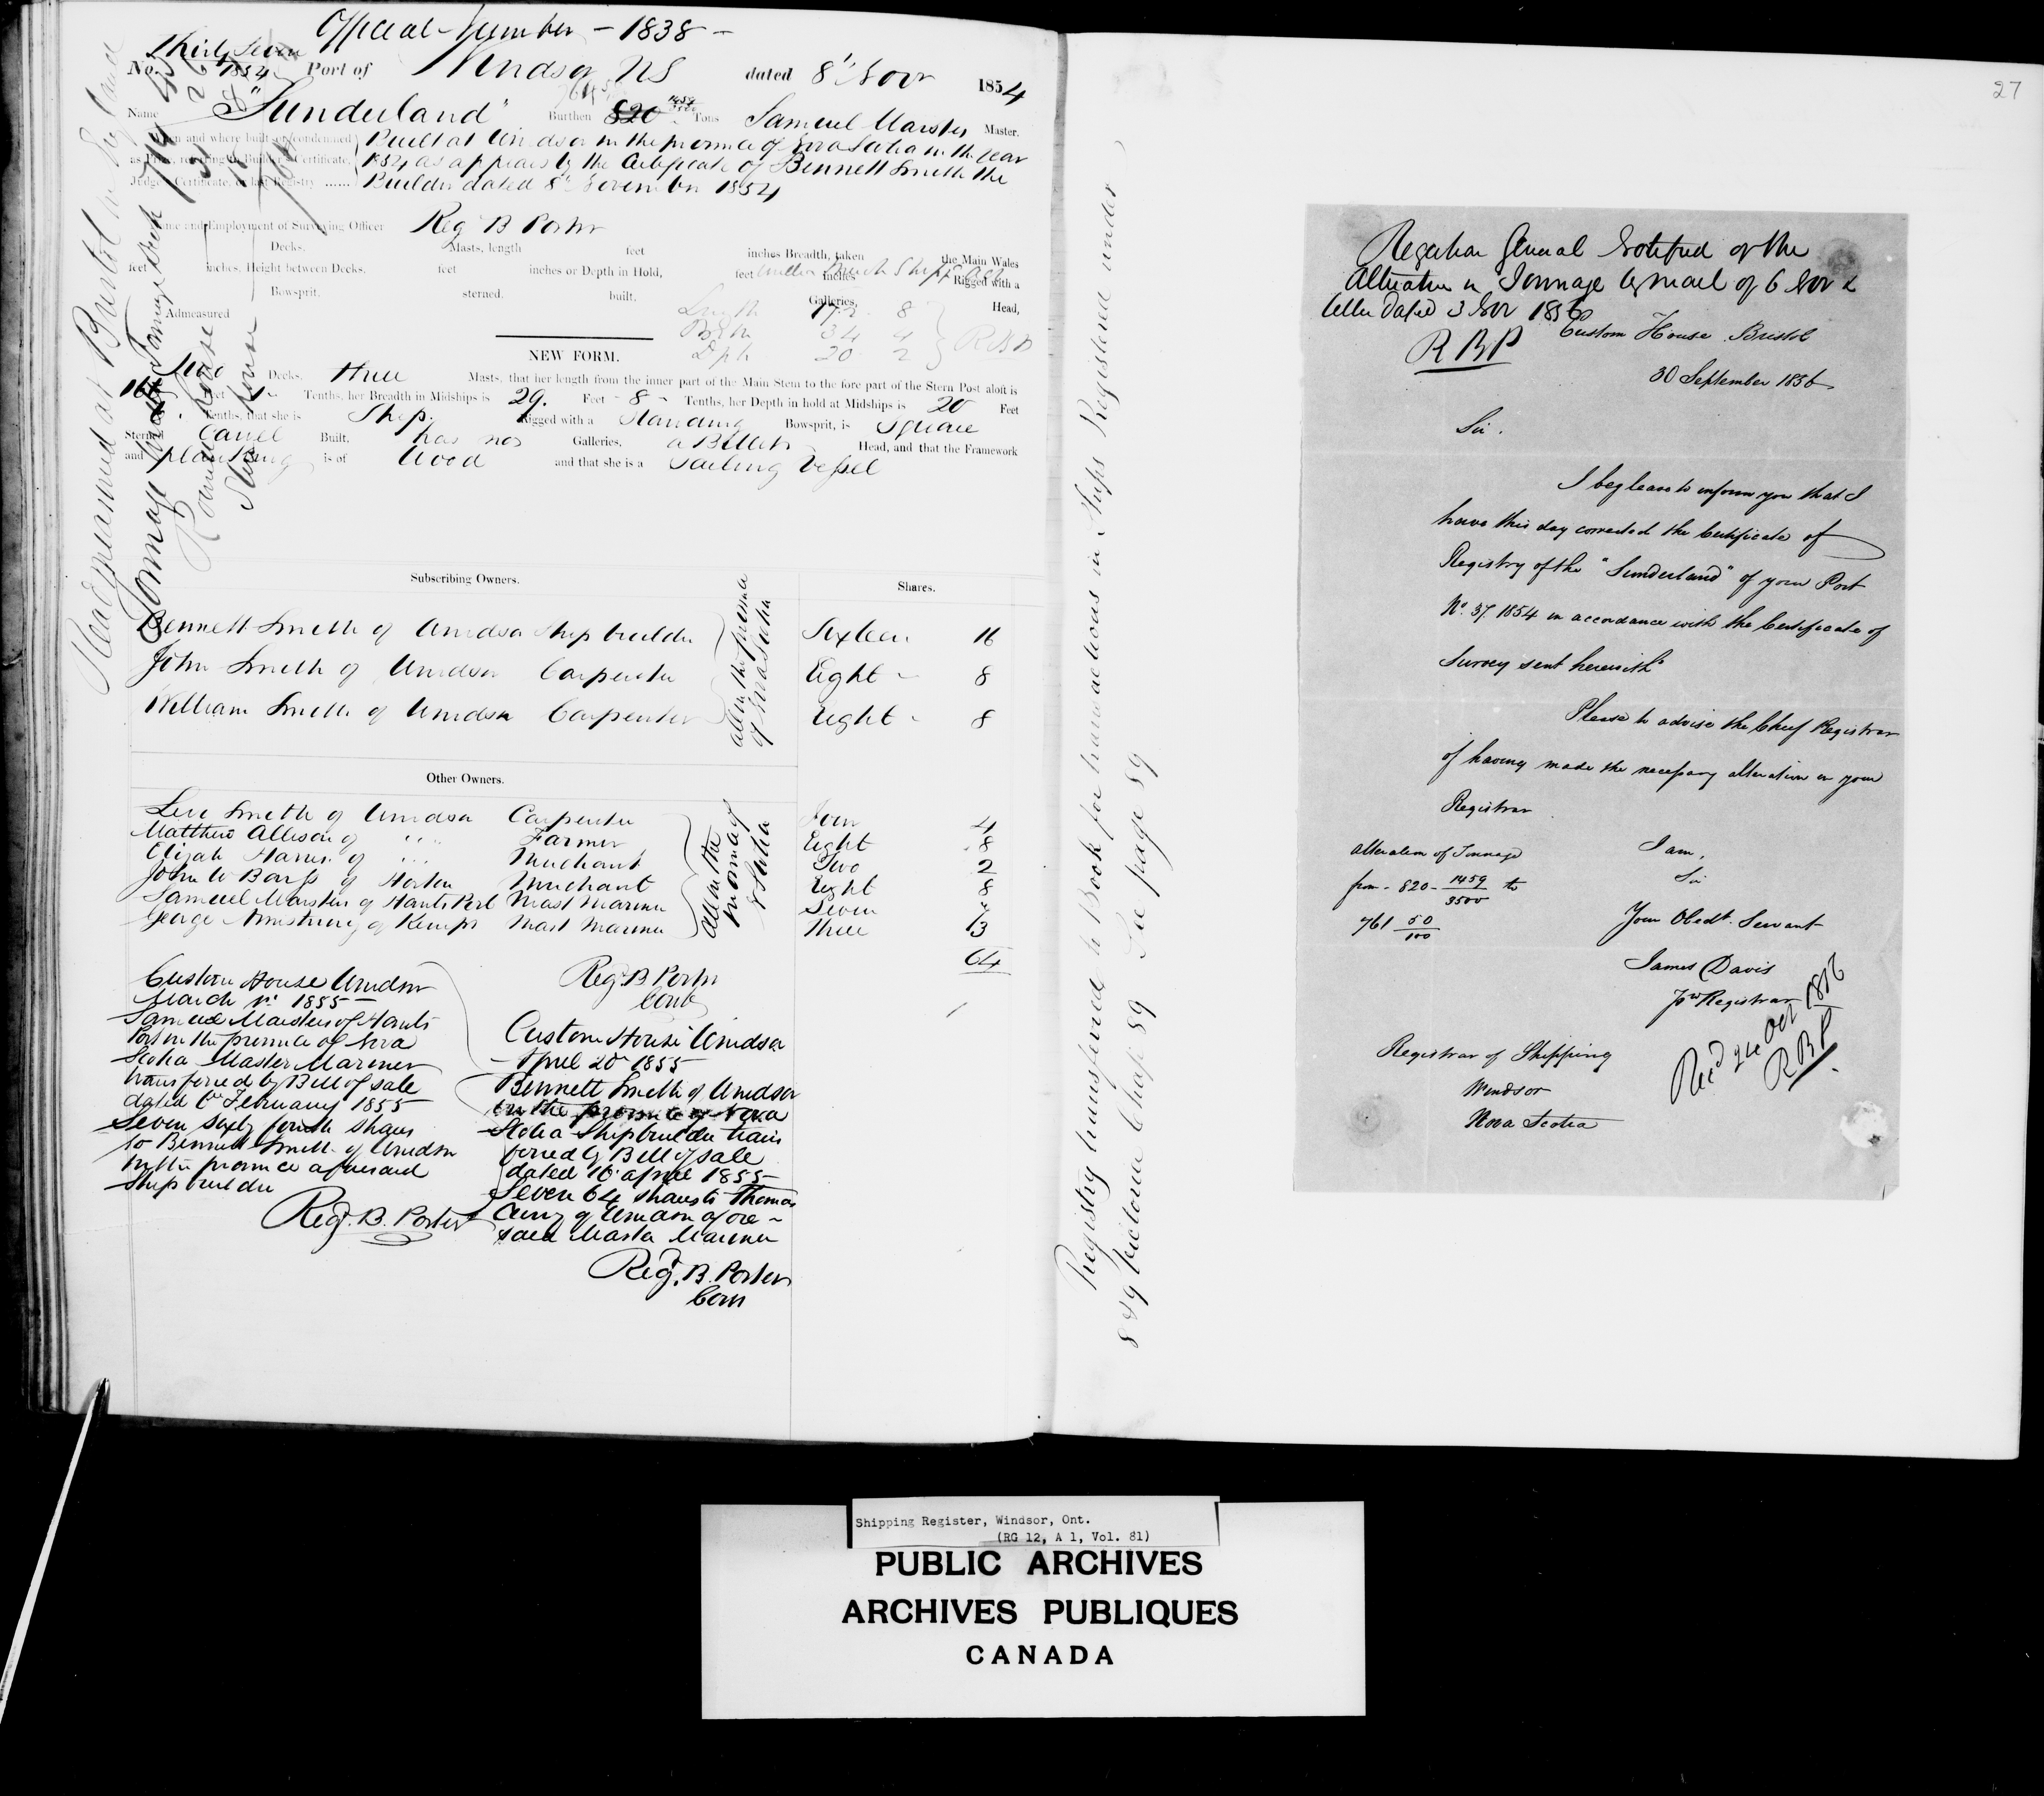 Official Number - 1838 -
No. Thirty Seven 1854 Port of Windsor NS dated 8th Novr 1854
Name "Sunderland" Burthen 820 1459/3500 Tons Samuel Marsters Master.
When and where built or condemned Built at Windsor in the province of Nova Scotia in the year
as Prize, referring to Builder's Certificate, 1854 as appears by the Certificate of Bennett Smith the
Judge's Certificate, or last Registry ...... Builder dated 8th November 1854
Name and Employment of Surveying Officer Reg B Porter
Decks. Masts, length feet inches Breadth, taken the Main Wales
feet inches. Height between Decks. feet inches or Depth in Hold, feet inches Rigged with a
Bowsprit. sterned. built. Galleries, Head,
Admeasured
Length 172 8
Bdth 34 4
Dpth 20 2
RBP
NEW FORM.
Two Decks. three Masts, that her length from the inner part of the Main Stem to the fore part of the Stern Post aloft is
Feet Tenths, her Breadth in Midships is 29. Feet - 8 - Tenths, her Depth in hold at Midships is 20 Feet
Tenths, that she is Ship Rigged with a Standing Bowsprit, is Square
Sterned Carvel Built, has no Galleries, a Billet Head, and that the Framework
and planking is of Wood and that she is a Sailing Vessel
Readmeasured at Bristol in England
Tonnage under Tonnage Deck
Round House
Subscribing Owners. Shares.
Bennett Smith of Windsor Ship builder Sixteen 16
John Smith of Windsor Carpenter Eight - 8
William Smith of Windsor Carpenter Eight - 8
all in the province
of Nova Scotia
Other Owners.
Levi Smith of Windsor Carpenter Four 4
Matthew Allison of " " Farmer Eight 8
Elijah Harris of " " Merchant Two 2
John W Barss of Horton Merchant Eight 8
Samuel Marsters of Hants Port Mast Mariner Seven
George Armstrong of Kempt Mast Mariner Three 3
64
all in the
province of
N Scotia
Reg. B. Porter
Cont
Custom House Windsor
March 1855 -
Samuel Marsters of Hants
Port in the province of Nova
Scotia Master Mariner
transferred by Bill of sale
dated 6th February 1855
Seven sixty fourth shares
to Bennett Smith of Windsor
in the province aforesaid
Ship builder
Reg. B. Porter
Custom House Windsor
April 20th 1855
Bennett Smith of Windsor
in the province of Nova
Scotia Shipbuilder trans
ferred by Bill of sale
dated 16th april 1855 -
Seven 64 shares to Thomas
Curry of Windsor afore -
said Master Mariner
Reg. B. Porter
Com
Registry transferred to Book for transactions in Ships Registered under
8 & 9 Victoria Chap 89 See page 89
27
Registrar General Notified of the
Alteration in Tonnage by mail of 6 Nov &
letter dated 3 Nov 1856
RBP
Custom House Bristol
30 September 1856
Sir.
I beg leave to inform you that I
have this day corrected the Certificate of
Registry of the "Sunderland" of your Port
No. 37. 1854 in accordance with the Certificate of
Survey sent herewith
Please to advise the Chief Registrar
of having made the necessary alteration in your
Registrar
alteration of Tonnage
from - 820 - 1459/3500 to
761 50/100
I am,
Sir
Your Obedt. Servant
James Davis
Registrar
Recd 24 Oct 1856
RBP
Registrar of Shipping
Windsor
Nova Scotia
Shipping Register, Windsor, Ont.
(RG 12, A 1, Vol. 81)
PUBLIC ARCHIVES
ARCHIVES PUBLIQUES
CANADA